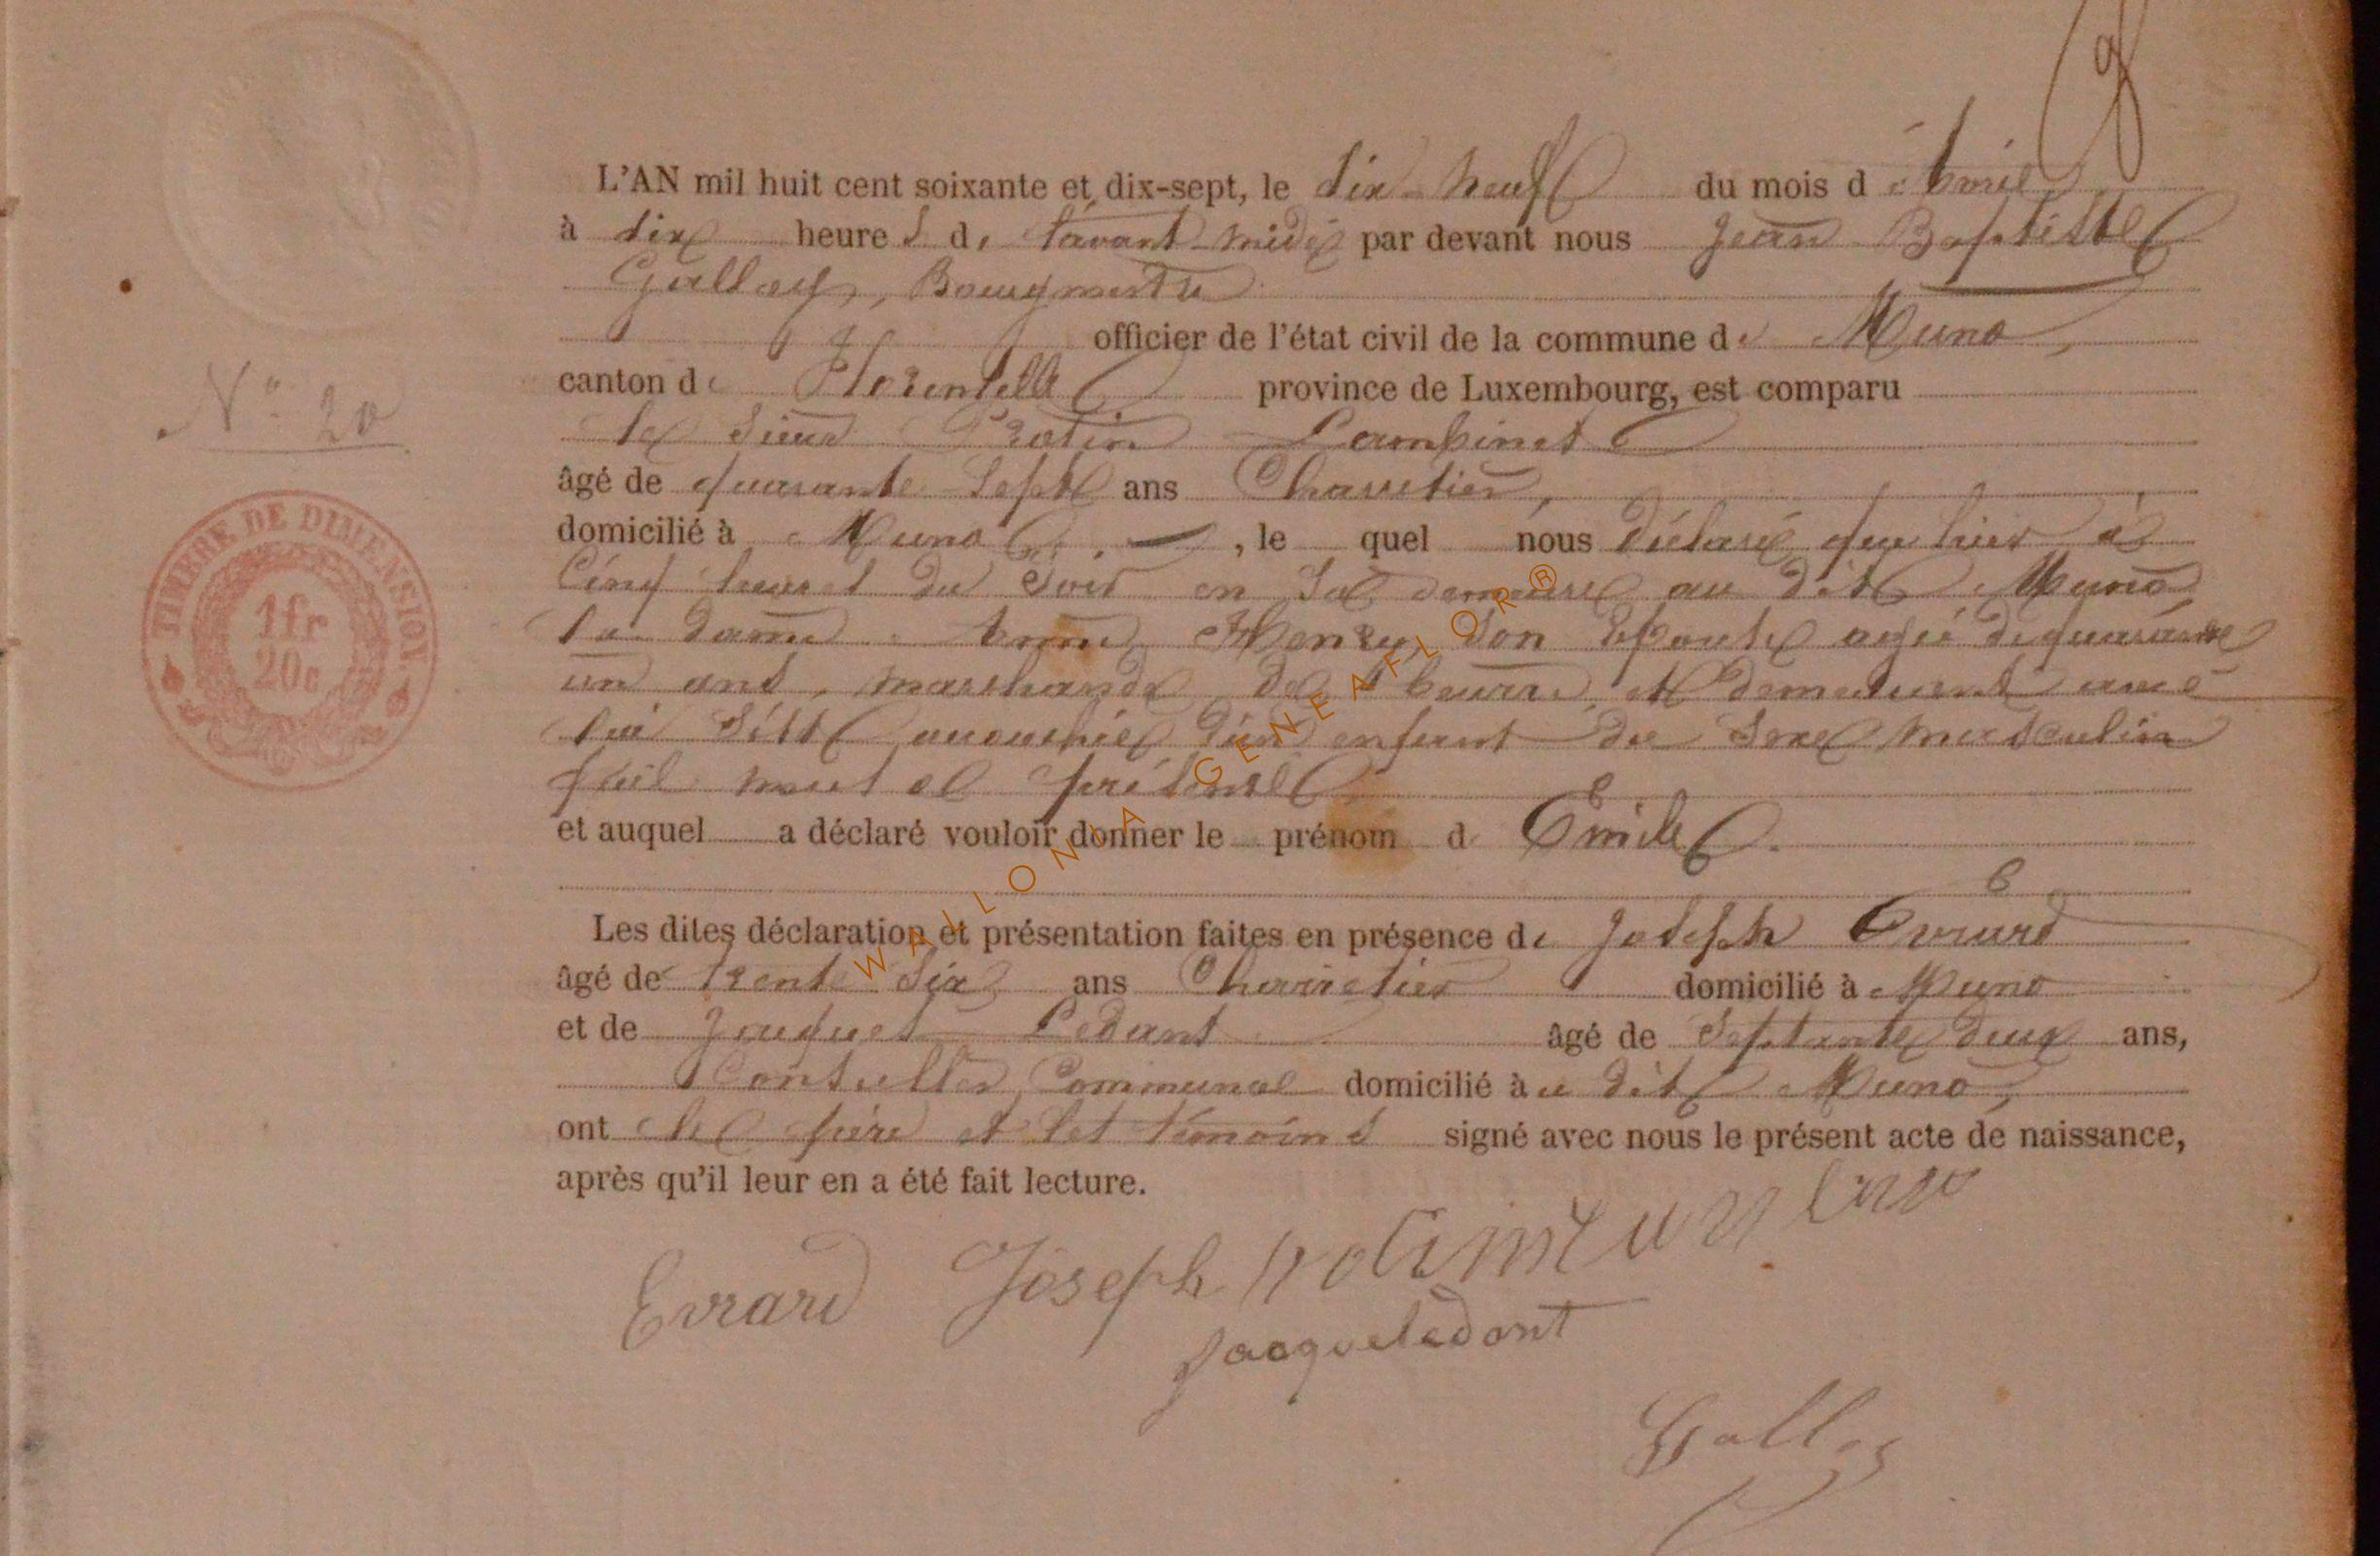 L'AN mil huit cent soixante et dix-sept, le dix-neuf du mois d'Avril
à dix heures de l'avant-midi par devant nous Jean Baptiste
Gallas, Bourgmestre
officier de l'état civil de la commune de Muno,
canton de Florenville province de Luxembourg, est comparu
N° 20
le sieur Protin Lambinet
âgé de quarante sept ans Charretier,
domicilié à Muno, le quel nous déclaré que hier à
TIMBRE DE DIMENSION
1fr
20c
Cinq heures du soir en sa demeure au dit Muno
la dame Henry son épouse agée de quarante
un ans, marchande de beurre, et demeurant avec
lui s'est accouchée d'un enfant du sexe masculin
qu'il nous a présenté
et auquel a déclaré vouloir donner le prénom d Emile.
WALLONIA GENEAFLOR®
Les dites déclaration et présentation faites en présence de Joseph Evrard
âgé de trente six ans Charretier domicilié à Muno
et de Jacques Ledant âgé de septante deux ans,
Conseiller Communal domicilié au dit Muno,
ont le père et les témoins signé avec nous le présent acte de naissance,
après qu'il leur en a été fait lecture.
Evrard Joseph
Jacque ledant